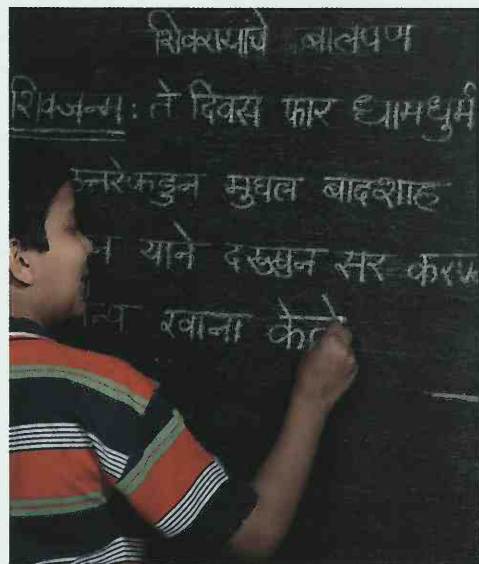 शिवरायांचे बालपण
शिवजन्म: ते दिवस फार धामधुमी
मुघल बादशाह
याने दख्खन सर
रवाना केले